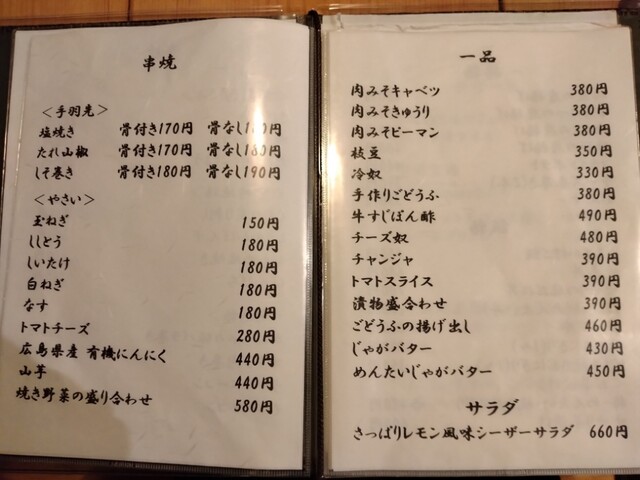 串焼
＜手羽先＞
塩焼き 骨付き170円 骨なし180円
たれ山椒 骨付き170円 骨なし180円
しそ巻き 骨付き180円 骨なし190円
＜やさい＞
玉ねぎ 150円
ししとう 180円
しいたけ 180円
白ねぎ 180円
なす 180円
トマトチーズ 280円
広島県産 有機にんにく 440円
山芋 440円
焼き野菜の盛り合わせ 580円
一品
肉みそキャベツ 380円
肉みそきゅうり 380円
肉みそピーマン 380円
枝豆 350円
冷奴 330円
手作りごどうふ 380円
牛すじぽん酢 490円
チーズ奴 480円
チャンジャ 390円
トマトスライス 390円
漬物盛合わせ 390円
ごどうふの揚げ出し 460円
じゃがバター 430円
めんたいじゃがバター 450円
サラダ
さっぱりレモン風味シーザーサラダ 660円